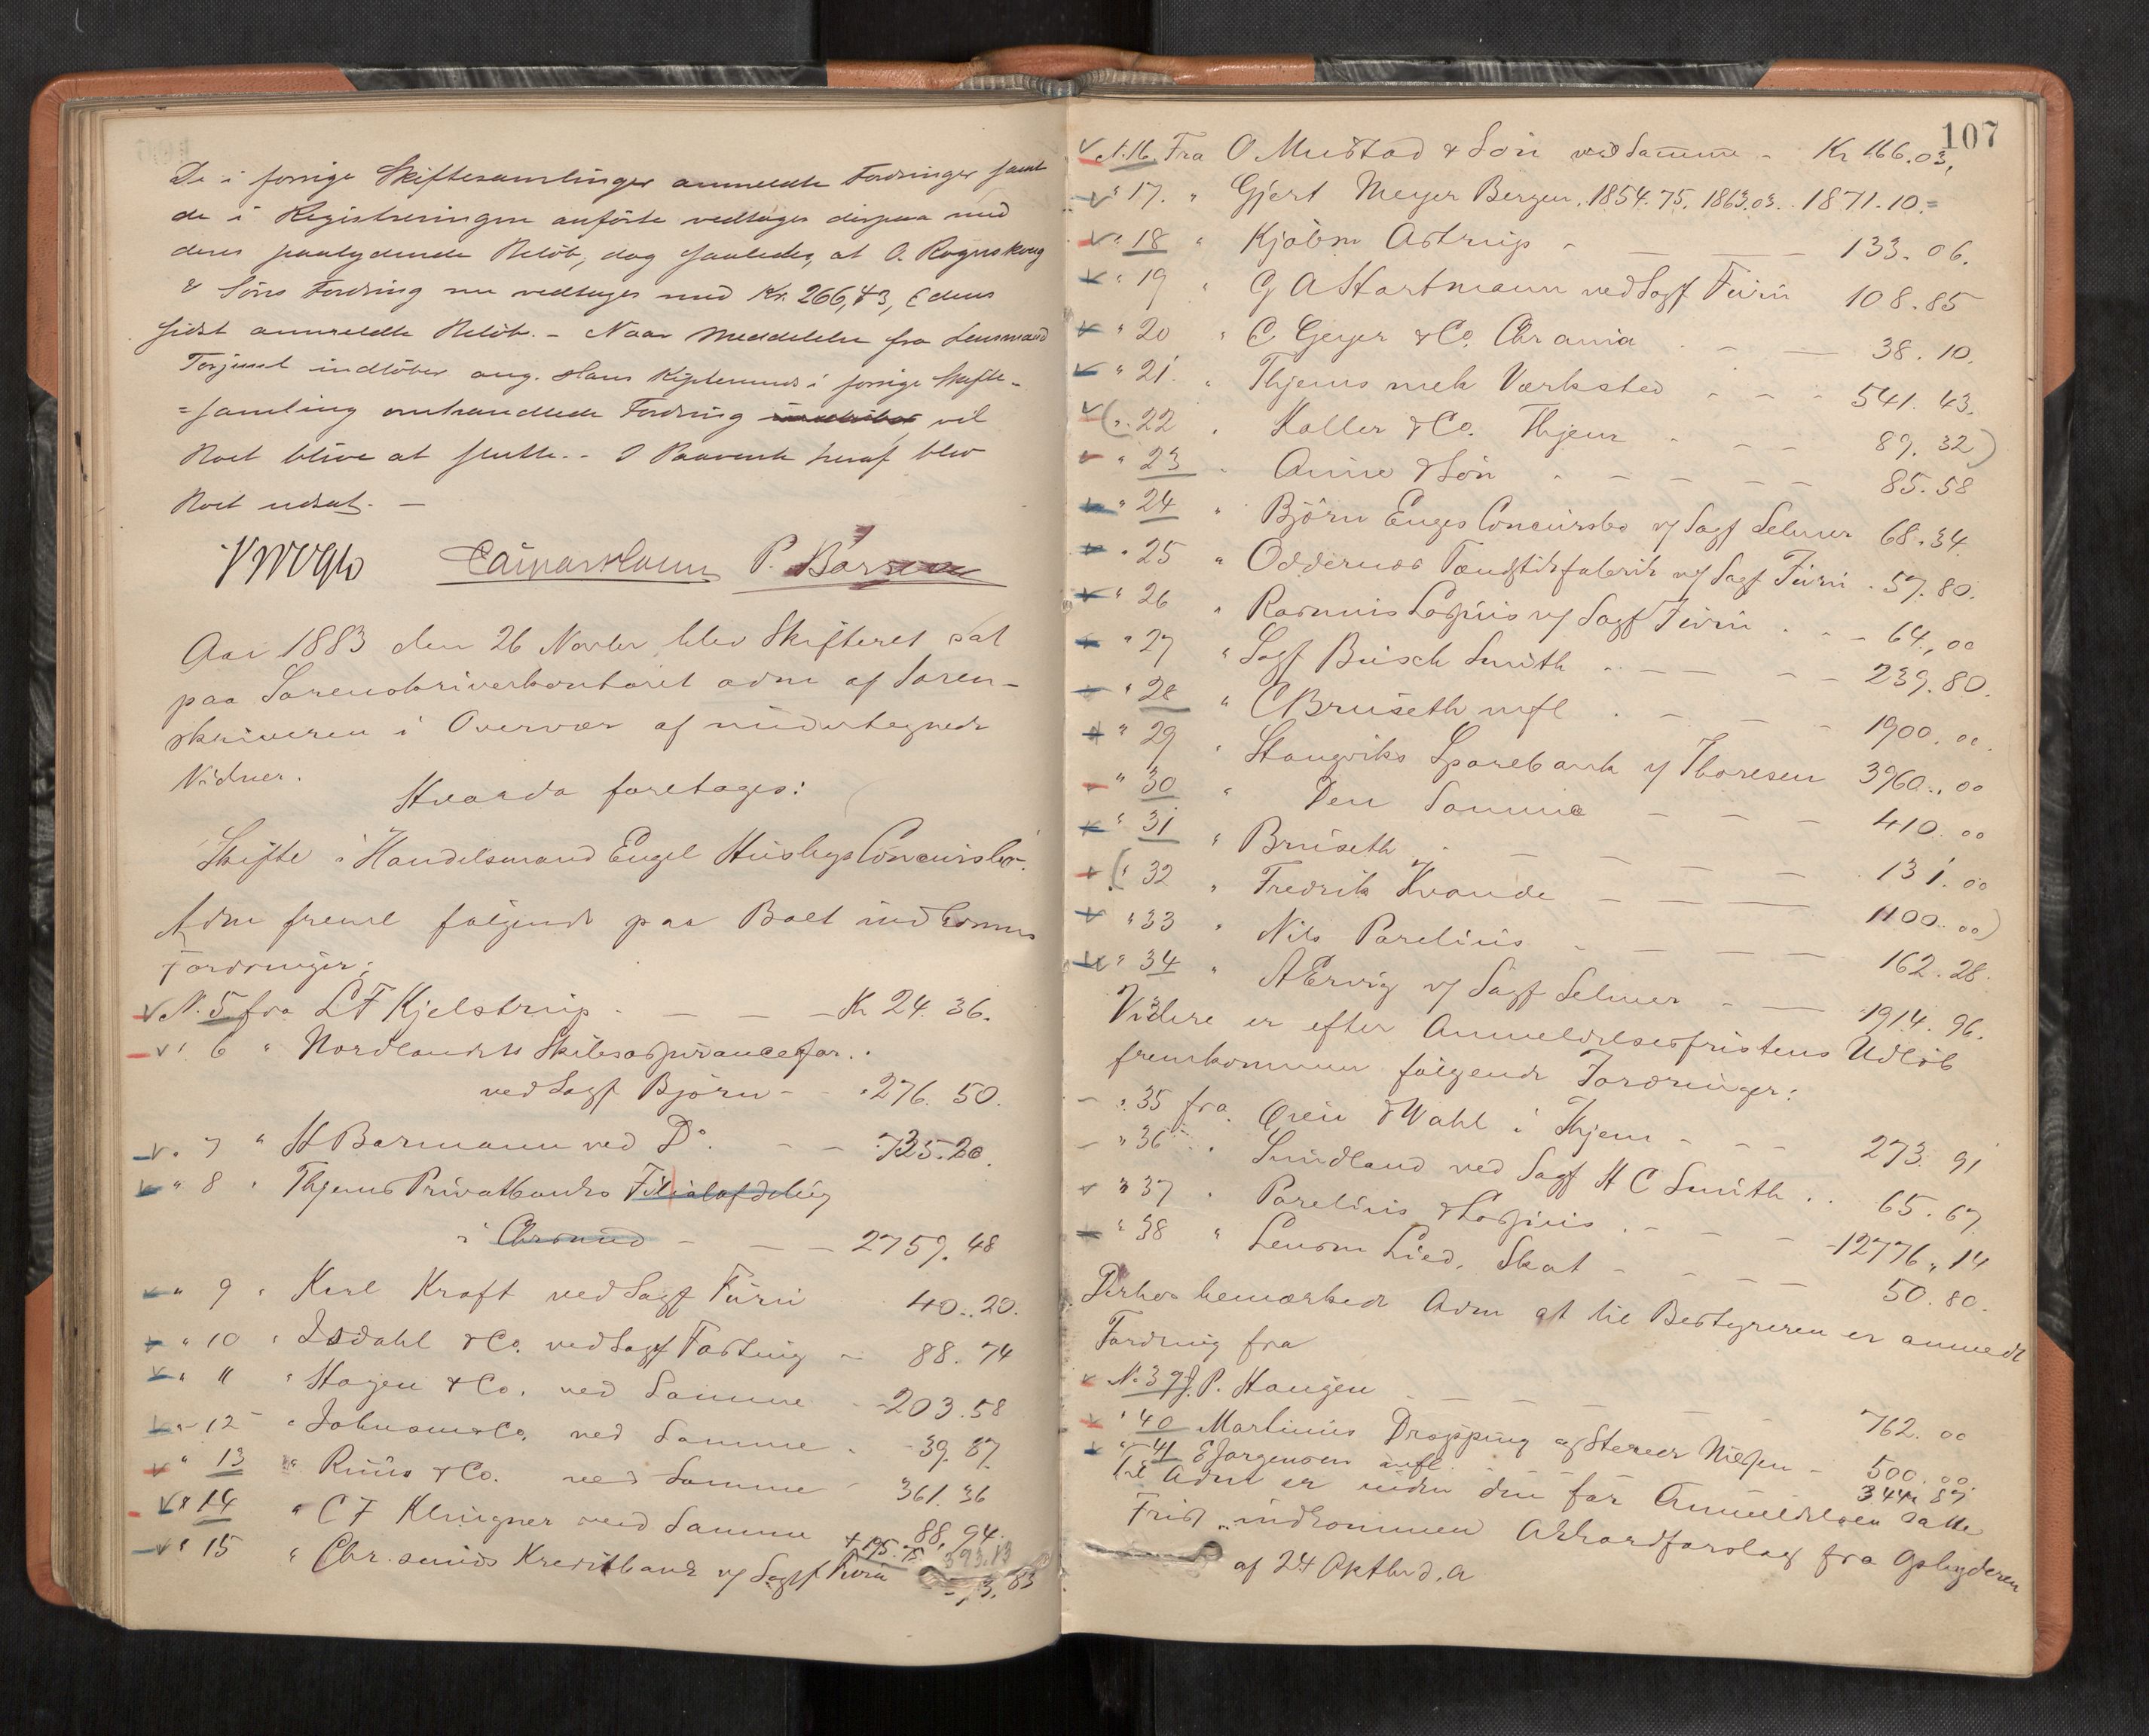 De i forrige Skiftesamlinger anmeldte Fordringer samt
de i Registreringen anförte vedtages desuaa med
deres paalydende Belöb, dog saaledes, at O. Rognskoug
& Söns Fordring nu vedtages med Kr. 266,43, dens
sidst anmeldte Belöb. - Naar Meddelelse fra Lensmand
indlöber ang. Hans i forrige Skifte-
=samling omhandlede Fordring vil
Boet blive at slutte. - I Paavente heraf blev
Boet udsat. -
P. Börsen
Aar 1883 den 26 Novbr blev Skifteret sat
paa Sorenskriverkontoret adm af Soren-
skriveren i Overvær af undertegnede
Vidner.
Hvorda foretoges:
Skifte i Handelsmand Engel Husbys Concursbo.
Adm freml følgende paa Boet indkomne
Fordringer:
N. 5 fra L F Kjelstrup - - - Kr 24. 36.
" 6 " Nordlandske Skibsassuranceefor..
ved Sagf Björn - - 276. 50.
" 7 " H Barmann ved Do. - - 735.20.
" 8 " Thjems Privatbanks Filialafdeling
i Chrsund - - - 2759. 48
" 9 " Karl Kraft ved Sagf Furu 40.. 20.
" 10 " Isdahl & Co. ved Sagf Fasting - 88. 74
" 11 " Hagen & Co. ved Samme - 203. 58
" 12 " Johnsen & Co. ved Samme - 39. 87.
" 13 " Ruus & Co. ved Samme - 361. 36
" 14 " C F Klingner ved Samme 88, 94.
" 15 " Chr.sunds Kreditbank v/ Sagf Furu 393.13
107
N. 16. Fra O Mustad & Sön ved Samme - Kr 166.03,
" 17. " Gjert Meyer Bergen. 1854.75. 1863.03. 1871.10.=
" 18 " Kjöbm Astrup - - - 133. 06.
" 19 " G A Hartmann ved Sagf Furu 108.85
" 20 " C Geyer & Co. Chrania - - 38. 10.
" 21. " Thjems mek Værksted - - - 541. 43.
(" 22 " Haller & Co. Thjem - - - 89. 32)
" 23 " Aune & Sön - - - - - 85.58
" 24 " Björn Enges Concursbo v/ Sagf Selmer 68.34.
" 25 " Oddernæs Tændstikfabrik v/ Sagf Furu . 57. 80.
" 26 " Rasmus Lossius v/ Sagf Furu . - - 64,,00
" 27 " Sagf Busch Smith - - - - 239. 80.
" 28 " C Bruseth mfl - - - - 1900. 00.
" 29 " Stangviks Sparebank v/ Thoresen 3960.. 00
" 30 " Den Samme - - - 410. 00
" 31 " Bruseth - - - - - 131. 00
(" 32 " Fredrik Kvande - - - 1100.. 00)
" 33 " Nils Parelius - - - - 162. 28.
" 34 " A Ervig v/ Sagf Selmer - - 1914. 96.
Videre er efter Anmeldelsesfristens Udløb
fremkommen følgende Fordringer:
" 35 fra Oren & Wahl i Thjem - - - 273. 91
" 36 " Lundland ved Sagf H C Smith . . 65. 67.
" 37 " Parelius & Lossius - - - - 12776,, 14
" 38 " Lensm Lied, Skat - - - - 50. 80.
Derhos bemærkede Adm at til Bestyreren er anmeldt
Fordring fra
N. 39 f. P. Haugen - - - - - 762. 00
" 40 Martinus Dropping af Nilsen - 500. 00.
" 41 E Jörgensen mfl 344. 87.
Til Adm er inden den for Anmeldelsen satte
Frist indkommen Akkordforslag fra Opbyderen
af 24 Oktbr d. A